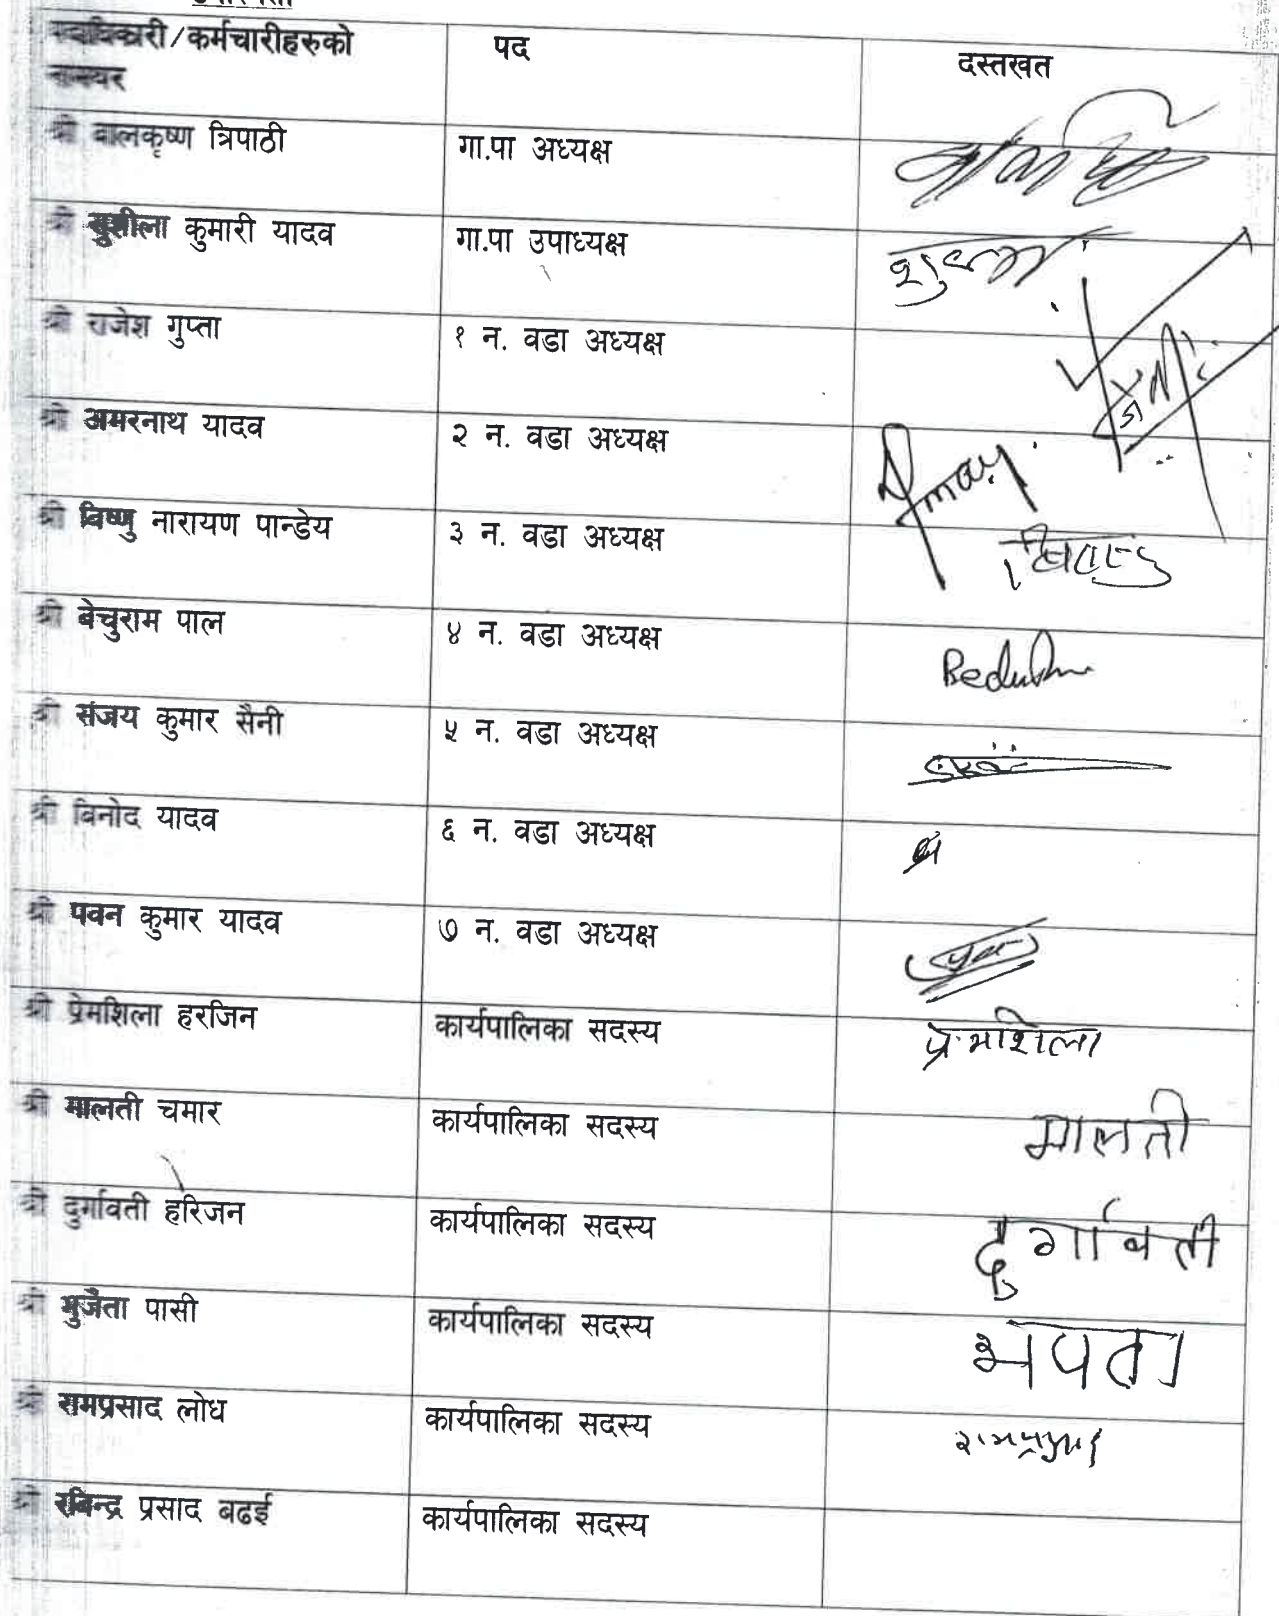 पदाधिकारी/कर्मचारीहरुको पद दस्तखत
नामथर
श्री बालकृष्ण त्रिपाठी गा.पा अध्यक्ष
श्री सुशीला कुमारी यादव गा.पा उपाध्यक्ष
श्री राजेश गुप्ता १ न. वडा अध्यक्ष
श्री अमरनाथ यादव २ न. वडा अध्यक्ष
श्री विष्णु नारायण पान्डेय ३ न. वडा अध्यक्ष
श्री बेचुराम पाल ४ न. वडा अध्यक्ष
श्री संजय कुमार सैनी ५ न. वडा अध्यक्ष
श्री विनोद यादव ६ न. वडा अध्यक्ष
श्री पवन कुमार यादव ७ न. वडा अध्यक्ष
श्री प्रेमशिला हरजिन कार्यपालिका सदस्य प्रेमशिला
श्री मालती चमार कार्यपालिका सदस्य मालती
श्री दुर्गावती हरिजन कार्यपालिका सदस्य दुर्गावती
श्री भुजैता पासी कार्यपालिका सदस्य
श्री रामप्रसाद लोध कार्यपालिका सदस्य रामप्रसाद
श्री रविन्द्र प्रसाद बढई कार्यपालिका सदस्य